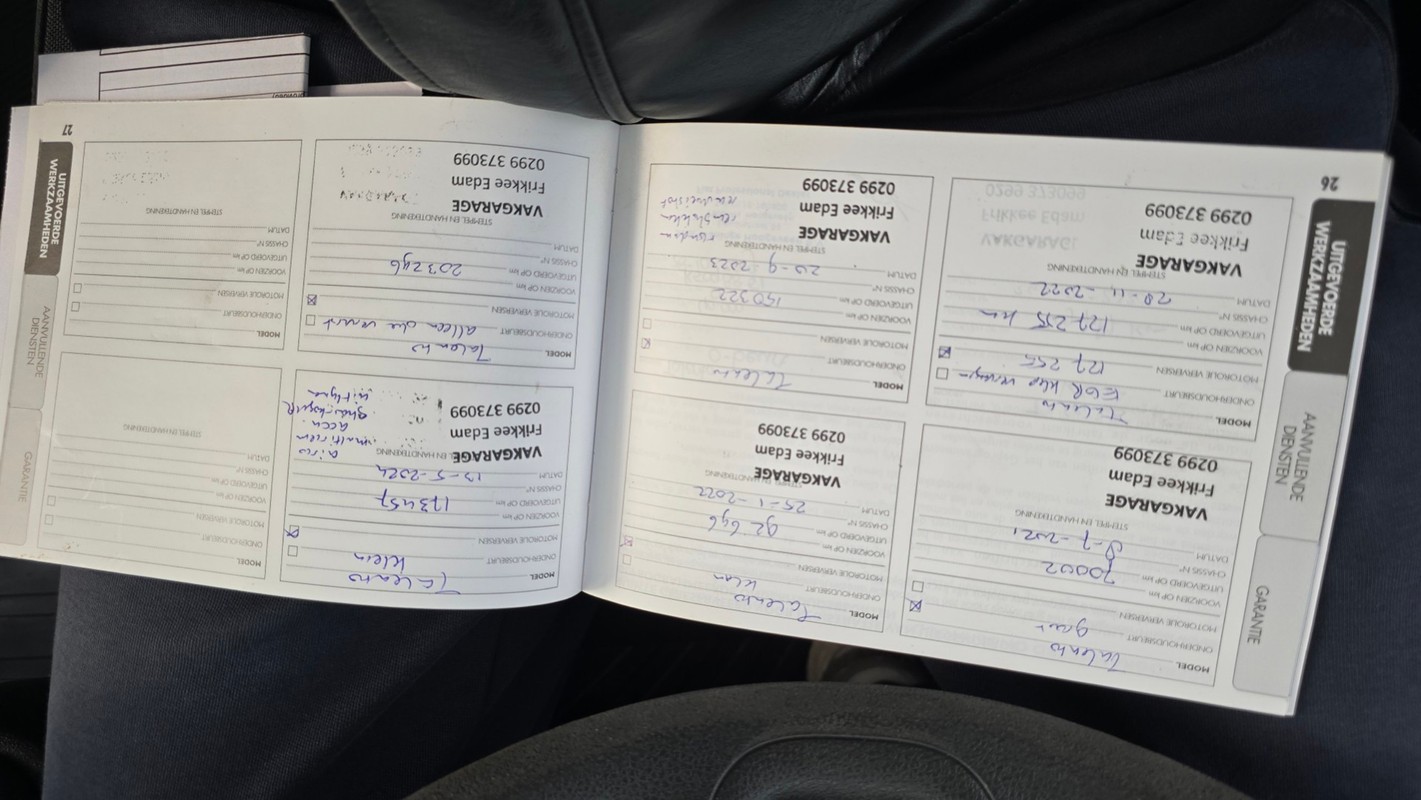 MODEL Talento
ONDERHOUDSBEURT
MOTOROLIE VERVERSEN
VOORZIEN OP km
UITGEVOERD OP km 70002
CHASSIS N°
DATUM 8-7-2021
STEMPEL EN HANDTEKENING
VAKGARAGE
Frikkee Edam
0299 373099
MODEL Talento
ONDERHOUDSBEURT Klein
MOTOROLIE VERVERSEN
VOORZIEN OP km
UITGEVOERD OP km 92646
CHASSIS N°
DATUM 25-1-2022
STEMPEL EN HANDTEKENING
VAKGARAGE
Frikkee Edam
0299 373099
MODEL Talento
ONDERHOUDSBEURT EGR klep vervangen
MOTOROLIE VERVERSEN 127 255
VOORZIEN OP km
UITGEVOERD OP km 127 255 km
CHASSIS N°
DATUM 28-11-2022
STEMPEL EN HANDTEKENING
VAKGARAGE
Frikkee Edam
0299 373099
MODEL Talento
ONDERHOUDSBEURT
MOTOROLIE VERVERSEN
VOORZIEN OP km
UITGEVOERD OP km 150322
CHASSIS N°
DATUM 20-9-2023
STEMPEL EN HANDTEKENING
VAKGARAGE
Frikkee Edam
0299 373099
26
UITGEVOERDE
WERKZAAMHEDEN
AANVULLENDE
DIENSTEN
GARANTIE
MODEL Talento
ONDERHOUDSBEURT Klein
MOTOROLIE VERVERSEN
VOORZIEN OP km
UITGEVOERD OP km 173457
CHASSIS N°
DATUM 13-5-2024
STEMPEL EN HANDTEKENING
VAKGARAGE
Frikkee Edam
0299 373099
airco
multiriem
accu
MODEL
ONDERHOUDSBEURT
MOTOROLIE VERVERSEN
VOORZIEN OP km
UITGEVOERD OP km
CHASSIS N°
DATUM
STEMPEL EN HANDTEKENING
MODEL Talento
ONDERHOUDSBEURT alleen olie ververst
MOTOROLIE VERVERSEN
VOORZIEN OP km
UITGEVOERD OP km 203246
CHASSIS N°
DATUM
STEMPEL EN HANDTEKENING
VAKGARAGE
Frikkee Edam
0299 373099
MODEL
ONDERHOUDSBEURT
MOTOROLIE VERVERSEN
VOORZIEN OP km
UITGEVOERD OP km
CHASSIS N°
DATUM
STEMPEL EN HANDTEKENING
27
UITGEVOERDE
WERKZAAMHEDEN
AANVULLENDE
DIENSTEN
GARANTIE